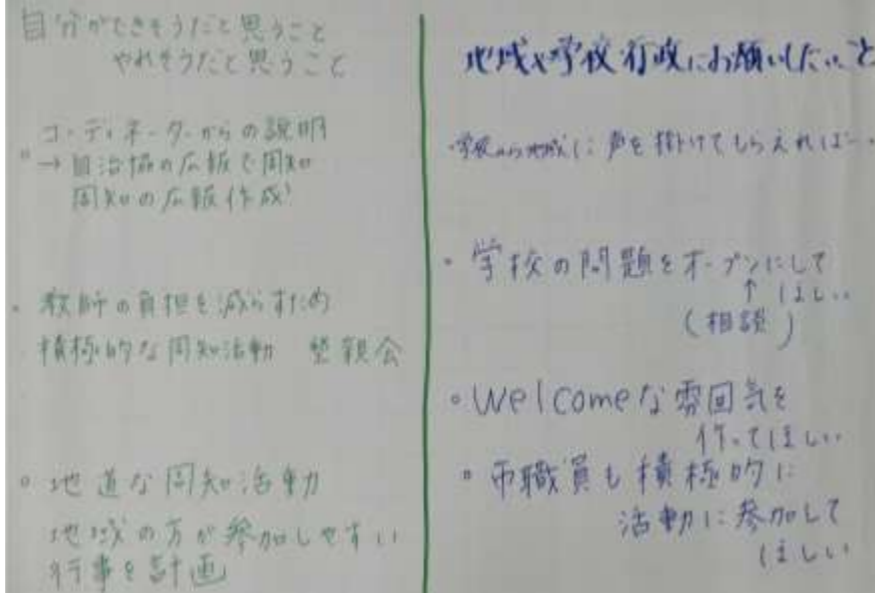 自分ができそうだと思うこと
やれそうだと思うこと
。コーディネーターからの説明
→自治協の広報で周知
周知の広報作成
・教師の負担を減らすため
積極的な周知活動 懇親会
。地道な周知活動
地域の方が参加しやすい
行事を計画
地域や学校・行政にお願いしたいこと
・学校から地域に声を掛けてもらえれば…
・学校の問題をオープンにして
↑ ほしい
(相談)
。Welcomeな雰囲気を
作ってほしい
。市職員も積極的に
活動に参加して
ほしい